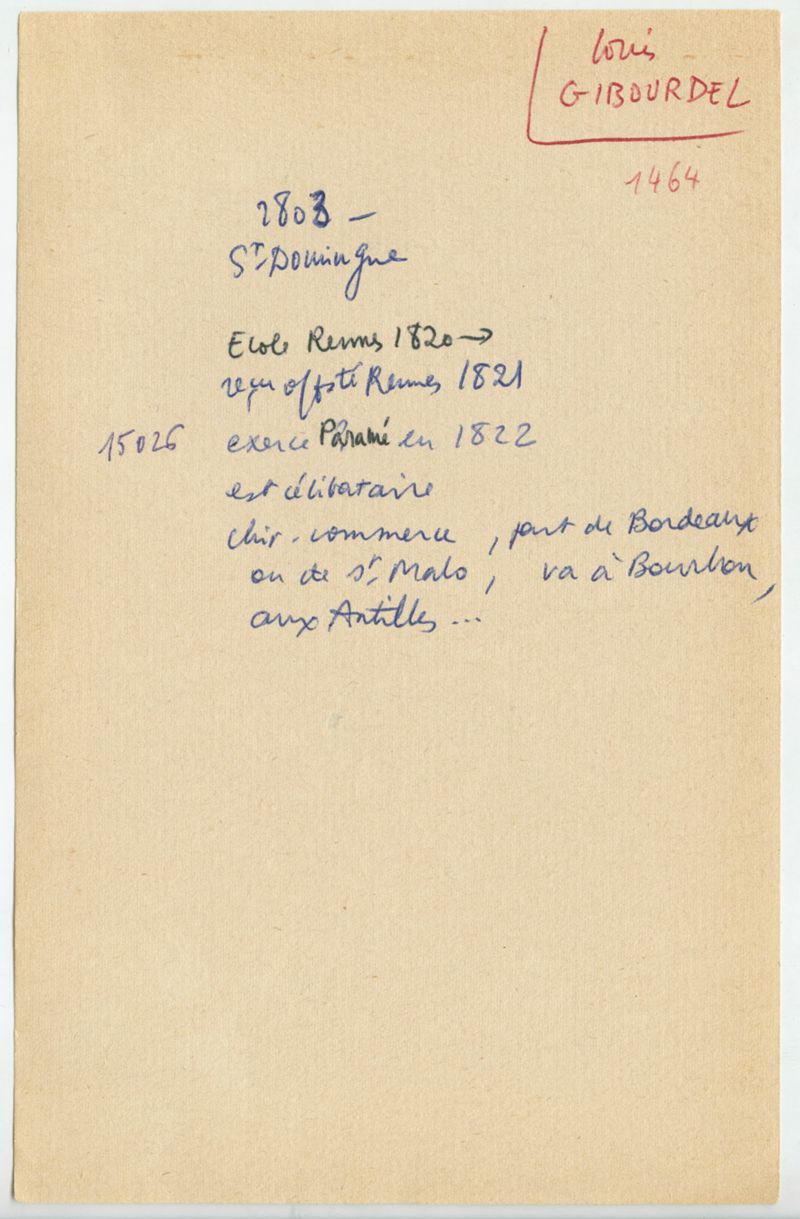 Louis
GIBOURDEL
1464
1803 —
St-Domingue
Ecole Rennes 1820 →
reçu offsté Rennes 1821
15026 exerce Paramé en 1822
est célibataire
chir. commerce, part de Bordeaux
ou de St Malo, va à Bourbon,
aux Antilles...